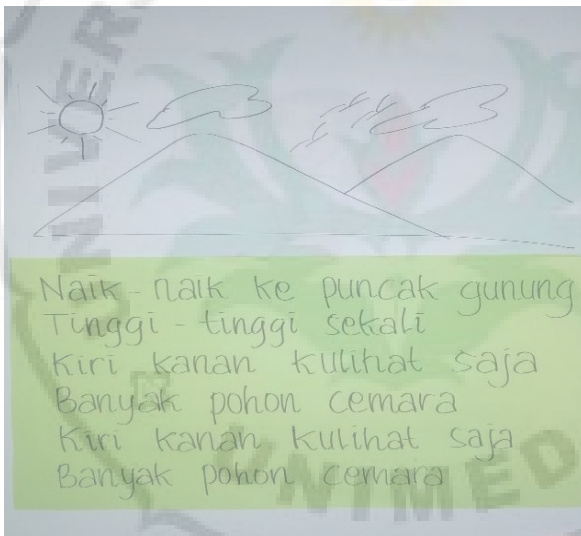 Naik-naik ke puncak gunung
Tinggi-tinggi sekali
Kiri kanan kulihat saja
Banyak pohon cemara
Kiri kanan kulihat saja
Banyak pohon cemara
UNIVER
UNIMED